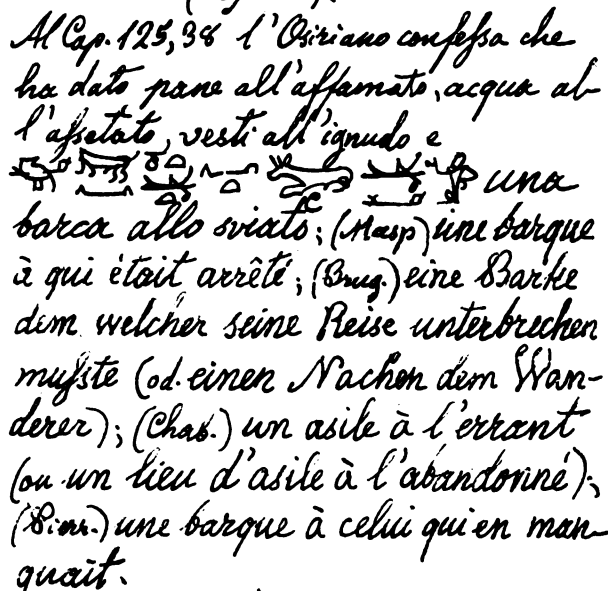 Al Cap. 125,38 l'Osiriano confessa che
ha dato pane all'affamato, acqua al-
l'assetato, vesti all'ignudo e
una
barca allo sviato; (Masp) une barque
à qui était arrêté; (Brug.) eine Barke
dem welcher seine Reise unterbrechen
mußte (od. einen Nachen dem Wan-
derer); (Chab.) un asile à l'errant
(ou un lieu d'asile à l'abandonné);
(Pierr.) une barque à celui qui en man-
quait.